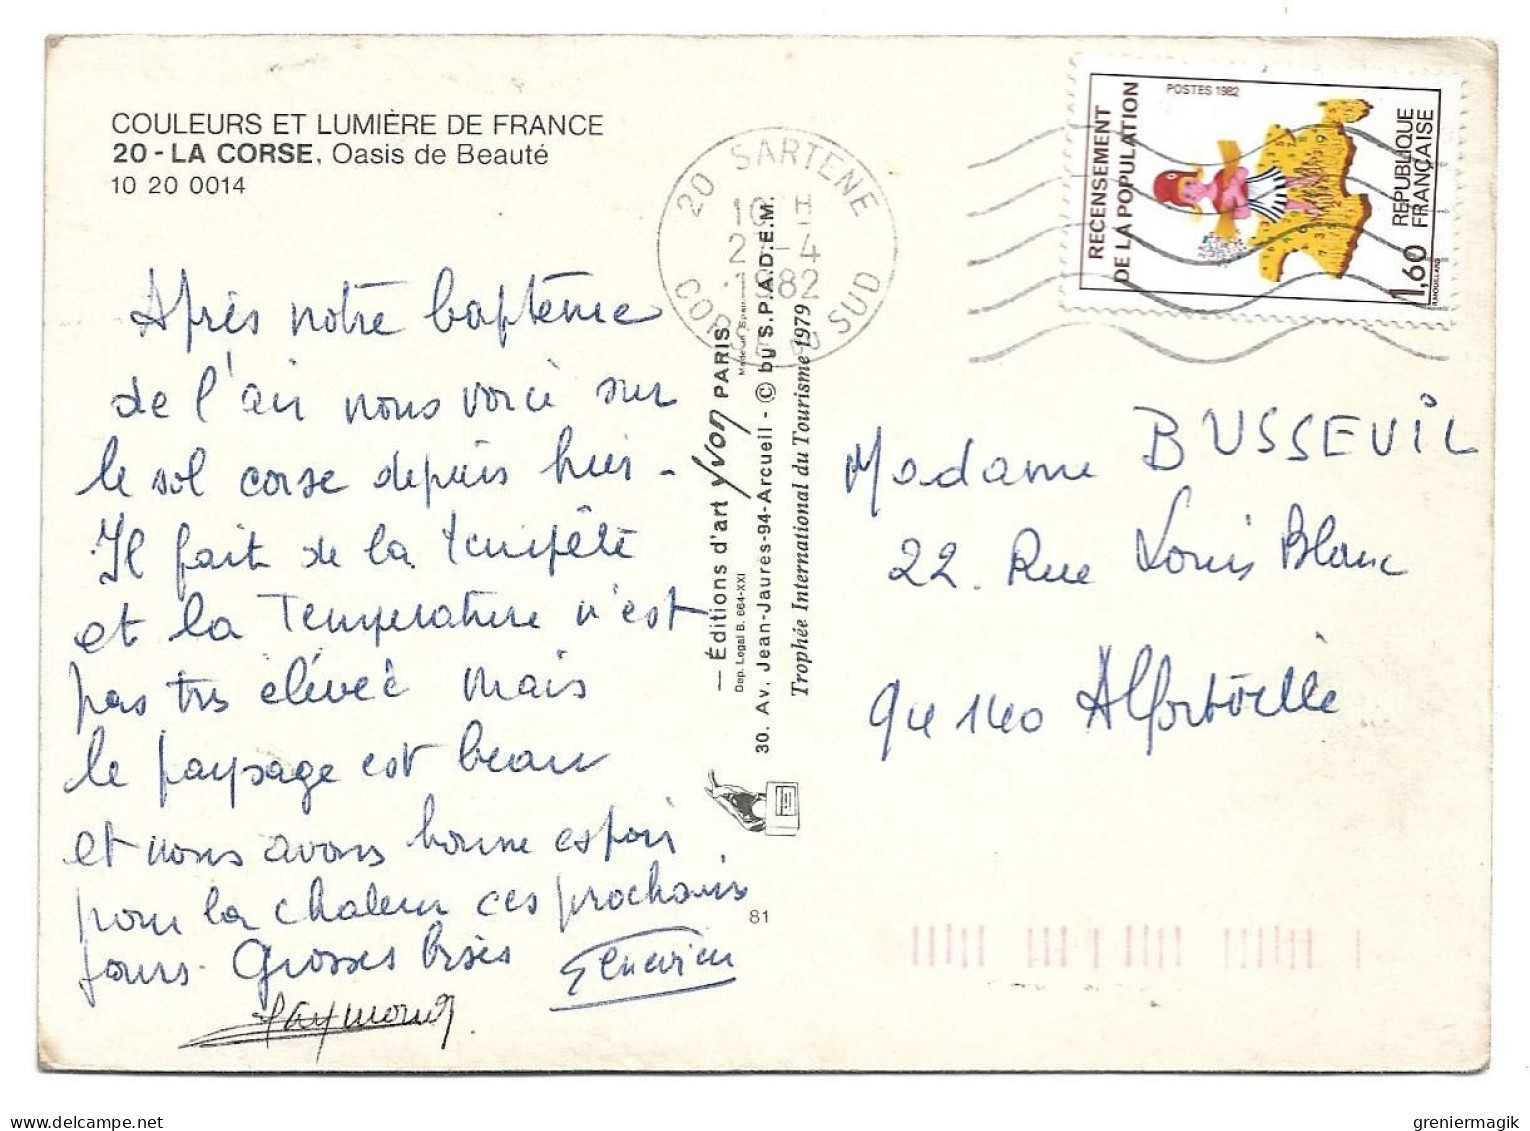 COULEURS ET LUMIÈRE DE FRANCE
20 - LA CORSE, Oasis de Beauté
10 20 0014
Après notre baptême
de l'air nous voici sur
le sol corse depuis hier -
Il fait de la tempête
et la Température n'est
pas très élevée mais
le paysage est beau
et nous avons bonne espoir
pour la chaleur ces prochains
jours. Grosses bises
Geneviève
Raymond.
— Éditions d'art Yvon PARIS
Dép. Légal B. 664-XXI
30. Av. Jean-Jaures-94-Arcueil - © by S.P.A.D.E.M.
Trophée International du Tourisme 1979
81
20 SARTENE
H
-4
1982
CORSE DU SUD
POSTES 1982
RECENSEMENT
DE LA POPULATION
RÉPUBLIQUE
FRANÇAISE
1,60
Madame BUSSEUIL
22. Rue Louis Blanc
94 140 Alfortville
greniermagik